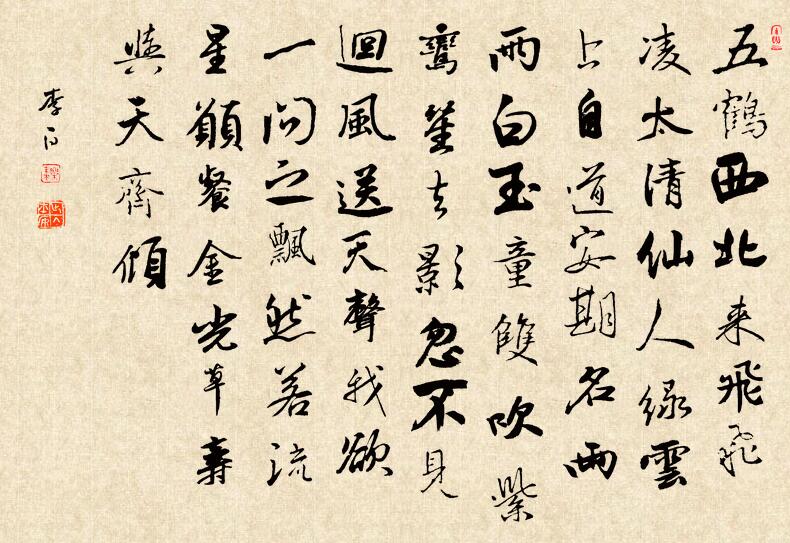 五鶴西北来飛飛
凌太清仙人緑雲
上自道安期名兩
兩白玉童雙吹紫
鸞笙去影忽不見
迴風送天聲我欲
一問之飄然若流
星願餐金光草壽
與天齊傾
李白